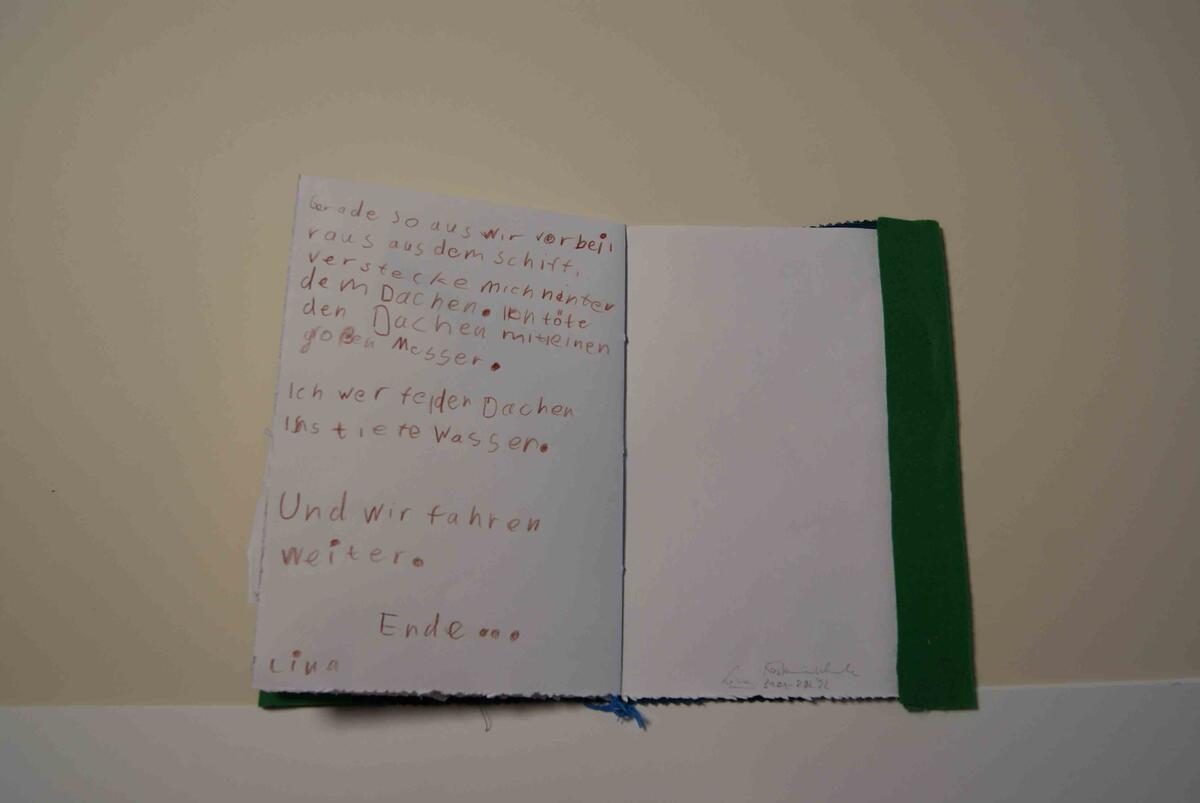 Gerade so aus wir vorbei,
raus aus dem schift,
verstecke mich hinter
dem Dachen. Ich töte
den Dachen mit einen
goßen Messer.
Ich wer fe den Dachen
ins tiefe Wasser.
Und wir fahren
weiter.
Ende...
Lina
Lina